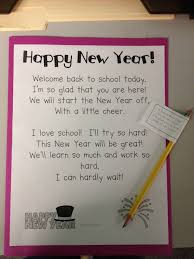 Happy New Year!
Welcome back to school today.
I'm so glad that you are here!
We will start the New Year off,
With a little cheer.
I love school! I'll try so hard!
This New Year will be great!
We'll learn so much and work so
hard,
I can hardly wait!
HAPPY
NEW YEAR!